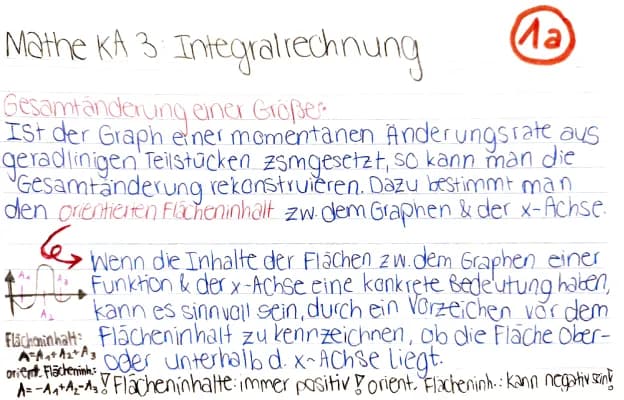 Mathe KA 3: Integralrechnung
1a
Gesamtänderung einer Größe:
Ist der Graph einer momentanen Änderungsrate aus
geradlinigen Teilstücken zsmgesetzt, so kann man die
Gesamtänderung rekonstruieren. Dazu bestimmt man
den orientierten Flächeninhalt zw. dem Graphen & der x-Achse.
Wenn die Inhalte der Flächen zw. dem Graphen einer
Funktion & der x-Achse eine konkrete Bedeutung haben,
kann es sinnvoll sein, durch ein Vorzeichen vor dem
Flächeninhalt zu kennzeichnen, ob die Fläche Ober-
oder unterhalb d. x-Achse liegt.
A₁ A₃
A₂
Flächeninhalt:
A=A₁+A₂+A₃
orient. Flächeninh.:
A=-A₁+A₂-A₃
! Flächeninhalte: immer positiv! orient. Flächeninh.: kann negativ sein!